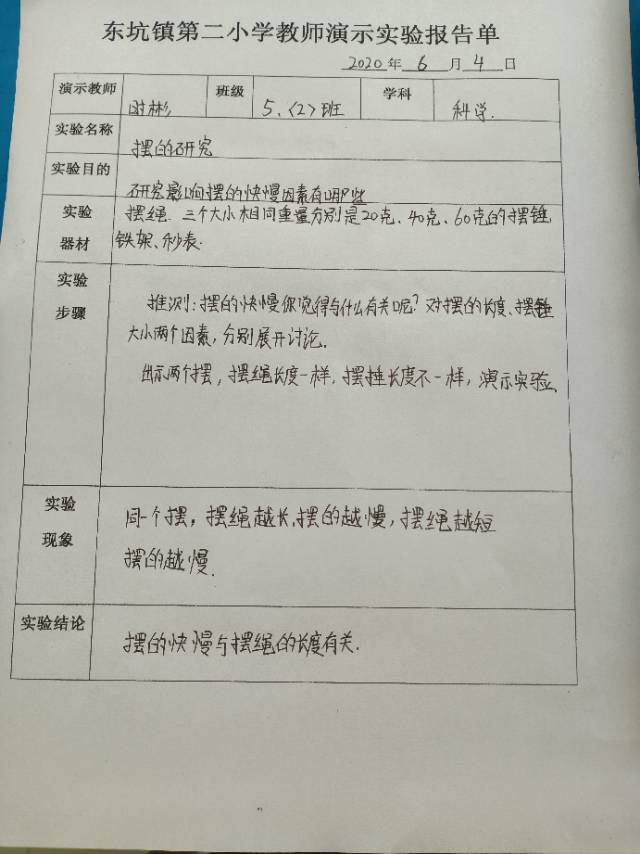 东坑镇第二小学教师演示实验报告单
2020年6月4日
演示教师 时彬 班级 5.(2)班 学科 科学.
实验名称 摆的研究
实验目的 研究影响摆的快慢因素有哪些
实验器材 摆绳.三个大小相同重量分别是20克、40克、60克的摆锤,
铁架、秒表.
实验步骤 推测:摆的快慢你觉得与什么有关呢?对摆的长度、摆锤
大小两个因素,分别展开讨论.
出示两个摆,摆绳长度一样,摆捶长度不一样,演示实验.
实验现象 同一个摆,摆绳越长,摆的越慢,摆绳越短
摆的越慢.
实验结论 摆的快慢与摆绳的长度有关.